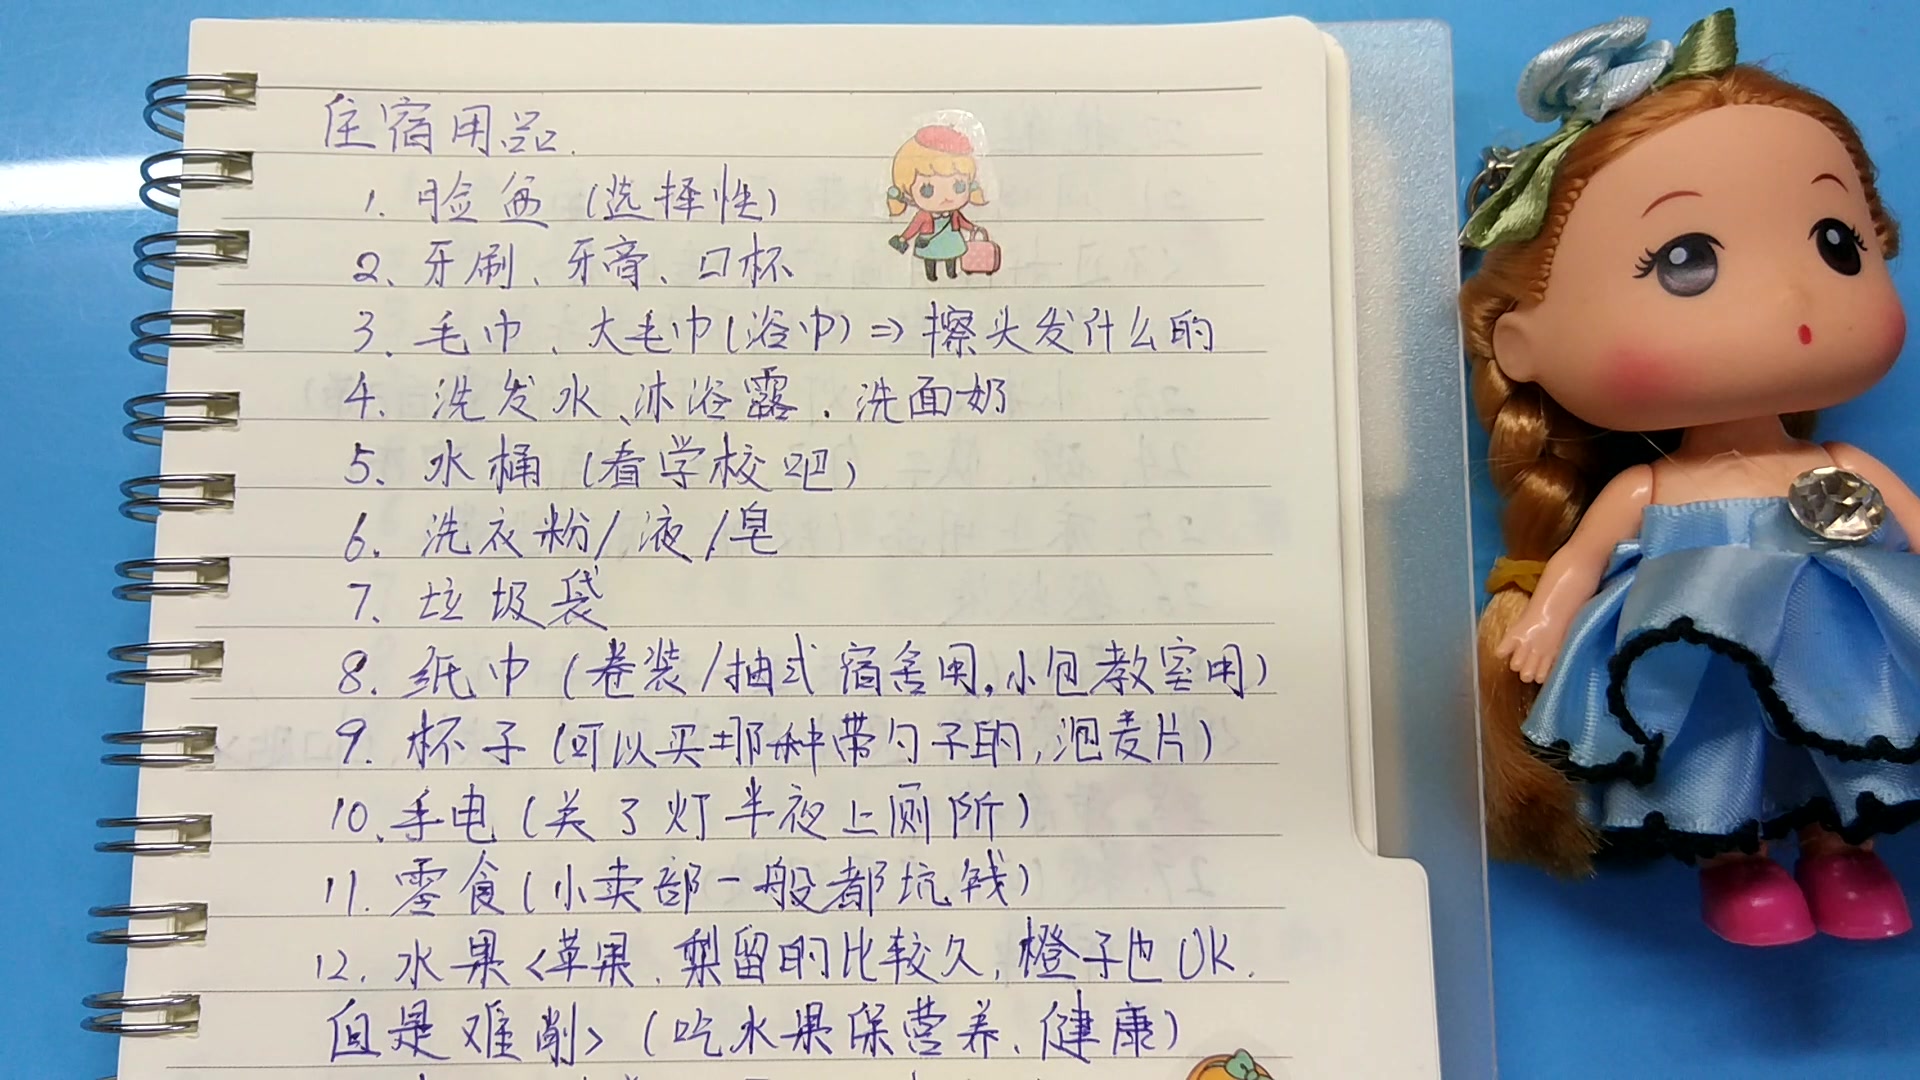 住宿用品.
1. 脸盆 (选择性)
2、牙刷、牙膏、口杯
3、毛巾、大毛巾(浴巾) => 擦头发什么的
4. 洗发水、沐浴露、洗面奶
5. 水桶 (看学校吧)
6. 洗衣粉/液/皂
7. 垃圾袋
8. 纸巾 (卷装/抽式宿舍用,小包教室用)
9. 杯子 (可以买那种带勺子的,泡麦片)
10、手电 (关了灯半夜上厕所)
11. 零食 (小卖部一般都坑钱)
12. 水果<苹果、梨留的比较久,橙子也OK.
但是难削> (吃水果保营养、健康)